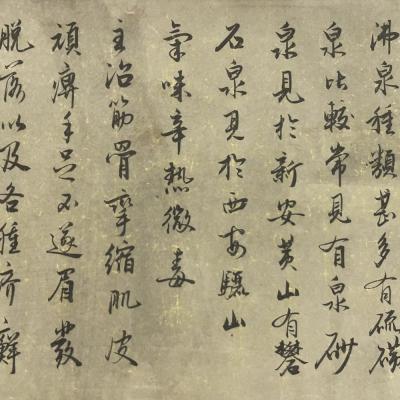 沸泉種類甚多有硫磺
泉比較常見有泉砂
泉見於新安黄山有礬
石泉見於西安驪山
氣味辛熱微毒
主治筋骨孿缩肌皮
頑痹手足不遂眉髮
脱落以及各種疥癬